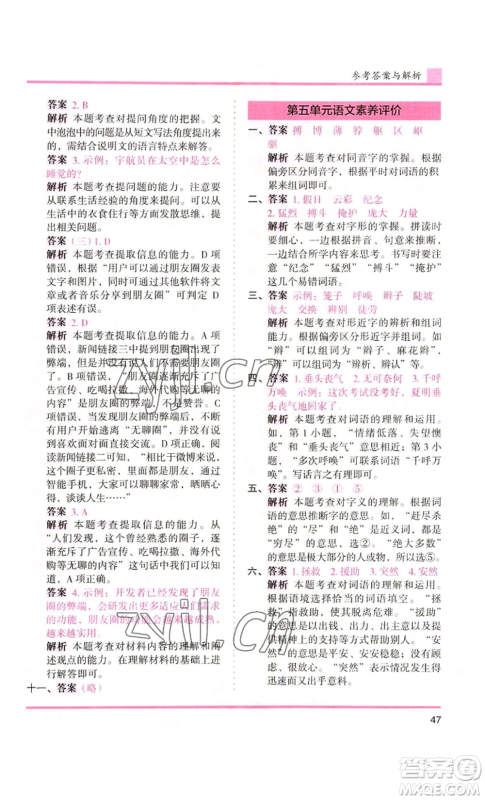 参考答案与解析
答案 2. B
解析 本题考查对提问角度的把握。文
中泡泡中的问题是从短文写法角度提出来
的,需要结合说明文的语言特点来解答。
答案 3. 示例:宇航员在太空中是怎么
睡觉的?
解析 本题考查提问题的能力。注意
要从联系生活经验的角度提出问题。可以从
生活中的衣食住行等方面发散思维,提出
相关问题。
答案 (三)1. D
解析 本题考查提取信息的能力。D 项
错误,根据“用户可以通过朋友圈发表文
字和图片,同时可通过其他软件将文章或
者音乐分享到朋友圈”可判定 D
项表述有误。
答案 2. D
解析 本题考查提取信息的能力。A 项
错误,新闻链接三中提到朋友圈出现了
广告宣传、吃喝拉撒、海外代购等内容,这
是朋友圈出现的弊端,不是好处。D 项错误,
阅读新闻链接二可知“相比于微博来说,
这个圈子里更多的是现实中的朋友,再加上
智能手机……”
答案 3. A
解析 本题考查提取信息的能力。从
“人们发现,这个曾经很简单的圈子,逐
渐充斥了广告宣传、吃喝拉撒、海外代购
等内容”可以知道,A 项正确。
答案 4. 示例:开发者已经发现了朋友
圈的弊端,会研发出越来越适应人们需求
的功能,朋友圈的功能会越来越成熟,
越来越实用。
解析 本题考查对材料内容的理解和运
用能力。在理解材料的基础上进
行解答即可。
十一、答案 (略)
第五单元语文素养评价
一、答案 搏 博 薄 脖 躯 区 岖
驱
解析 本题考查对同音字的掌握。根据
偏旁区分不同的字,根据平时对词语的积
累来组词即可。
二、答案 1. 假日 云彩 纪念
2. 猛烈 搏斗 掩护 庞大 力量
解析 本题考查对字形的掌握。拼读时
要一边读一边结合生活和句意来推断。注
意“纪念”“猛烈”“搏斗”“掩护”
这几个易错词语。
三、答案 示例:笼子 呼唤 辫子 陡坡
庞大 交换 辨别 徒劳
解析 本题考查对形近字的辨析和组词
能力。根据偏旁区分形近字即可。如
“辫”可以组词为“辫子、麻花辫”,
“辨”可以组词为“辨析、辨认”等。
四、答案 1. 垂头丧气 2. 无可奈何 3. 千呼
万唤 示例:这次考试没考好,夏明垂头
丧气地回家了。
解析 本题考查对词语的理解和运用。
根据词语的意思,“情绪低落、失望懊
丧”可联系词语“垂头丧气”的意思,
“多次呼唤”可联系词语“千呼万
唤”。写话言之有理即可。
五、答案 ② ③ ① ⑤
解析 本题考查对字义的理解。根据词
语的意思推断字的意思即可。“赶尽杀
绝”的“尽”和“绝”意思相同,是
“穷尽”的意思,选②。“绝大多数”
的“绝”的意思是极、最,所以选⑤。
六、答案 1. 拯救 2. 援助 3. 突然 4. 安然
解析 本题考查对词语的运用。“拯
救”指救助,使脱离危难。“援助”指
以出钱、出力或出主意的方式去提供
精神上的支持或物质上的支援。“安
然”意思是平安无事地,没有顾虑、很
放心。“突然”表示动作、行为发生得
迅速且出人意料。
47
zyjl.cn
zyjl.cn
答案圈
MXQE.COM